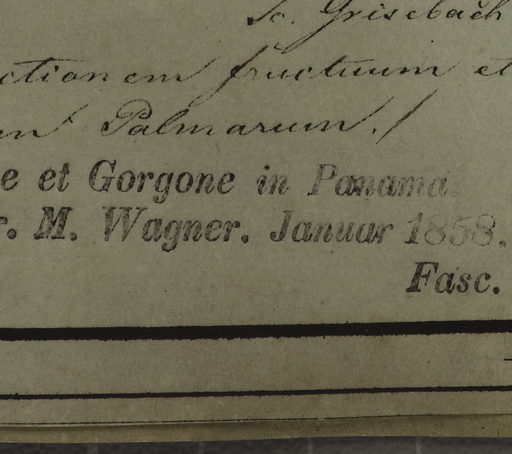 Sc. Grisebach
ctionem fructuum et
Palmarum./
e et Gorgone in Panama.
r. M. Wagner. Januar 1858.
Fasc.